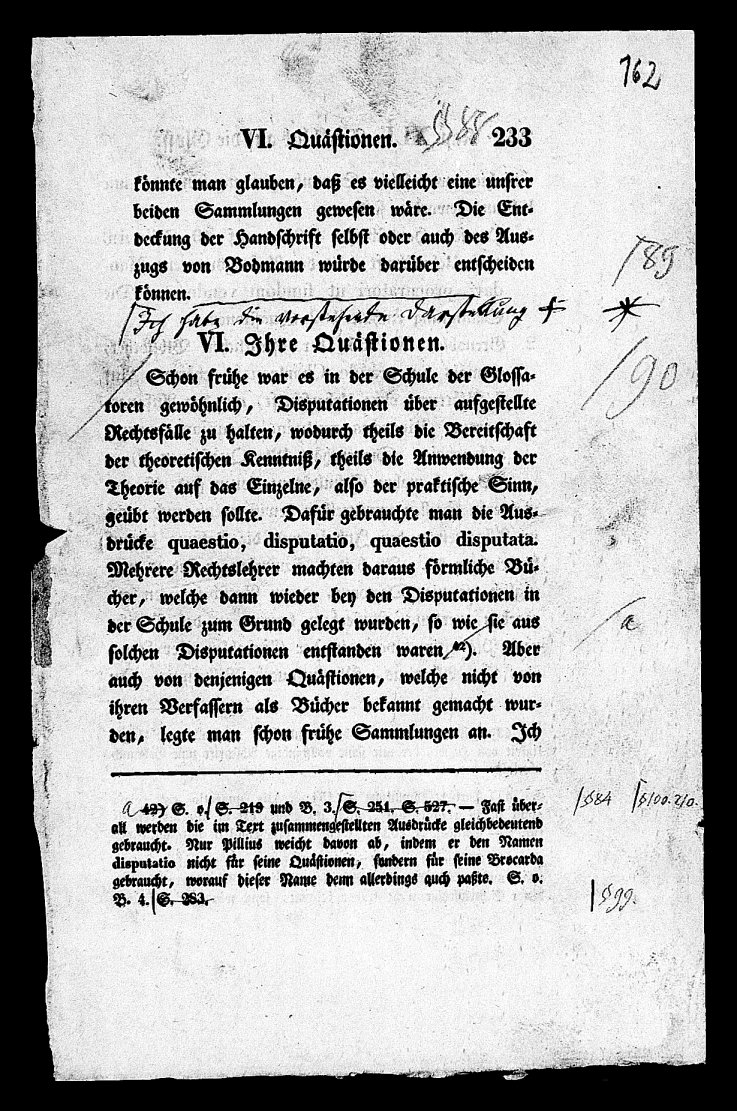 162
VI. Quästionen. §88 233
könnte man glauben, daß es vielleicht eine unsrer
beiden Sammlungen gewesen wäre. Die Ent-
deckung der Handschrift selbst oder auch des Aus-
zugs von Bodmann würde darüber entscheiden
können.
89
Ich habe die vorstehende Darstellung
VI. Ihre Quästionen.
90
Schon frühe war es in der Schule der Glossa-
toren gewöhnlich, Disputationen über aufgestellte
Rechtsfälle zu halten, wodurch theils die Bereitschaft
der theoretischen Kenntniß, theils die Anwendung der
Theorie auf das Einzelne, also der praktische Sinn,
geübt werden sollte. Dafür gebrauchte man die Aus-
drücke quaestio, disputatio, quaestio disputata.
Mehrere Rechtslehrer machten daraus förmliche Bü-
cher, welche dann wieder bey den Disputationen in
der Schule zum Grund gelegt wurden, so wie sie aus
a
solchen Disputationen entstanden waren 42). Aber
auch von denjenigen Quästionen, welche nicht von
ihren Verfassern als Bücher bekannt gemacht wur-
den, legte man schon frühe Sammlungen an. Ich
a 42) S. o. S. 219 und B. 3. S. 251. S. 527. — Fast über- §84 §100.210.
all werden die im Text zusammengestellten Ausdrücke gleichbedeutend
gebraucht. Nur Pillius weicht davon ab, indem er den Namen
disputatio nicht für seine Quästionen, sondern für seine Brocarda
gebraucht, worauf dieser Name denn allerdings auch paßte. S. o.
B. 4. S. 283. §99.